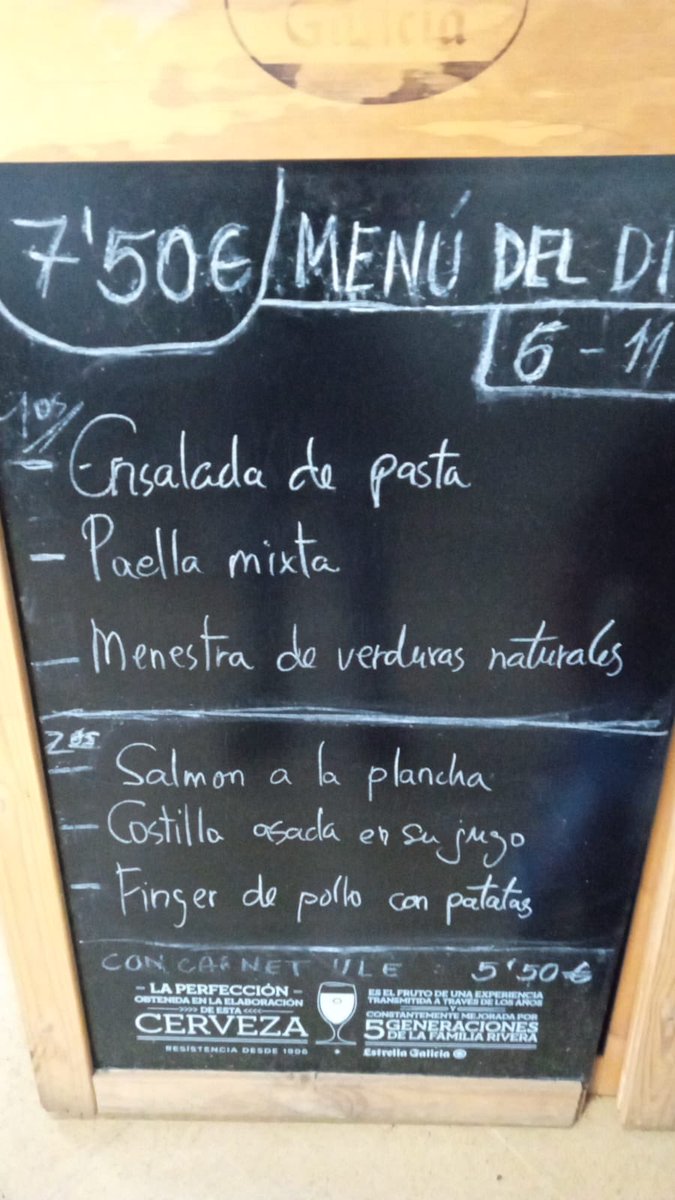 Galicia
7'50€ MENÚ DEL DI
6-11
1os
- Ensalada de pasta
- Paella mixta
- Menestra de verduras naturales
2os
- Salmon a la plancha
- Costilla asada en su jugo
- Finger de pollo con patatas
CON CARNET ULE 5'50€
LA PERFECCIÓN
OBTENIDA EN LA ELABORACIÓN
DE ESTA
CERVEZA
RESISTENCIA DESDE 1906
ES EL FRUTO DE UNA EXPERIENCIA
TRANSMITIDA A TRAVÉS DE LOS AÑOS
Y
CONSTANTEMENTE MEJORADA POR
5 GENERACIONES
DE LA FAMILIA RIVERA
Estrella Galicia